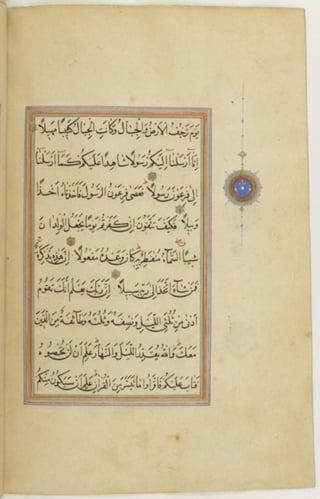 يَوْمَ تَرْجُفُ الْأَرْضُ وَالْجِبَالُ وَكَانَتِ الْجِبَالُ كَثِيبًا مَهِيلًا
إِنَّا أَرْسَلْنَا إِلَيْكُمْ رَسُولًا شَاهِدًا عَلَيْكُمْ كَمَا أَرْسَلْنَا
إِلَى فِرْعَوْنَ رَسُولًا فَعَصَى فِرْعَوْنُ الرَّسُولَ فَأَخَذْنَاهُ أَخْذًا
وَبِيلًا فَكَيْفَ تَتَّقُونَ إِنْ كَفَرْتُمْ يَوْمًا يَجْعَلُ الْوِلْدَانَ
شِيبًا السَّمَاءُ مُنْفَطِرٌ بِهِ كَانَ وَعْدُهُ مَفْعُولًا إِنَّ هَذِهِ تَذْكِرَةٌ
فَمَنْ شَاءَ اتَّخَذَ إِلَى رَبِّهِ سَبِيلًا إِنَّ رَبَّكَ يَعْلَمُ أَنَّكَ تَقُومُ
أَدْنَى مِنْ ثُلُثَيِ اللَّيْلِ وَنِصْفَهُ وَثُلُثَهُ وَطَائِفَةٌ مِنَ الَّذِينَ
مَعَكَ وَاللَّهُ يُقَدِّرُ اللَّيْلَ وَالنَّهَارَ عَلِمَ أَنْ لَنْ تُحْصُوهُ
فَتَابَ عَلَيْكُمْ فَاقْرَءُوا مَا تَيَسَّرَ مِنَ الْقُرْآنِ عَلِمَ أَنْ سَيَكُونُ مِنْكُمْ